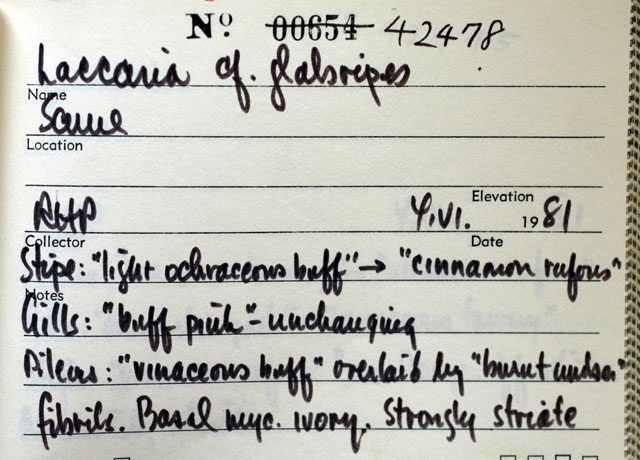 Nº 00654 42478
Laccaria cf. glabripes
Name
Same
Location
Elevation
RHP 4.VI. 1981
Collector Date
Stipe: "light ochraceous buff" → "cinnamon rufous"
Notes
Gills: "buff pink" - unchanging
Pileus: "vinaceous buff" overlaid by "burnt umber"
fibrils. Basal myc. ivory. Strongly striate